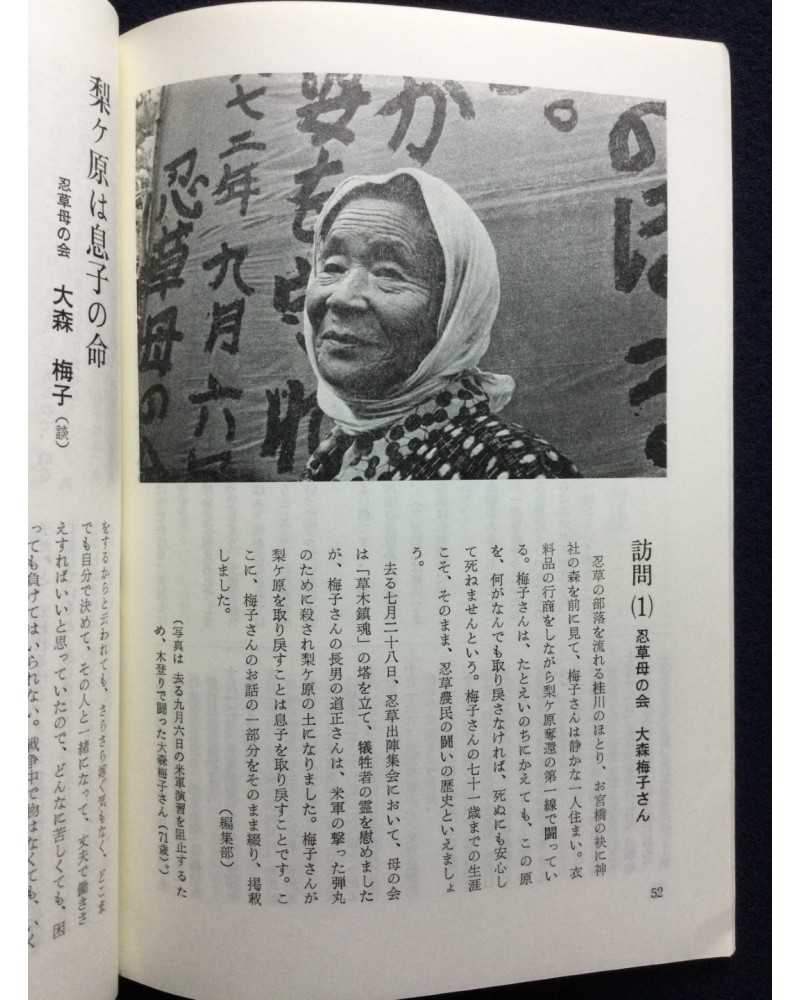 のぼる
か
。
姿を忘れ
七二年九月六日
忍草母の
訪問(1) 忍草母の会 大森梅子さん
忍草の部落を流れる桂川のほとり、お宮橋の袂に神
社の森を前に見て、梅子さんは静かな一人住まい。衣
料品の行商をしながら梨ケ原奪還の第一線で闘ってい
る。梅子さんは、たとえいのちにかえても、この原
を、何がなんでも取り戻さなければ、死ぬにも安心し
て死ねませんという。梅子さんの七十一歳までの生涯
こそ、そのまま、忍草農民の闘いの歴史といえましょ
う。
去る七月二十八日、忍草出陣集会において、母の会
は「草木鎮魂」の塔を立て、犠牲者の霊を慰めました
が、梅子さんの長男の道正さんは、米軍の撃った弾丸
のために殺され梨ケ原の土になりました。梅子さんが
梨ケ原を取り戻すことは息子を取り戻すことです。こ
こに、梅子さんのお話の一部分をそのまま綴り、掲載
しました。
(編集部)
(写真は 去る九月六日の米軍演習を阻止するた
め、木登りで闘った大森梅子さん(71歳)。)
52
梨ヶ原は息子の命
忍草母の会 大森 梅子(談)
をするからと云われても、さらさら
でも自分で決めて、その人と一緒になって、丈夫で働きさ
えすればいいと思っていたので、どんなに苦しくても、困
っても負けてはいられない。戦争中で物はなくても、